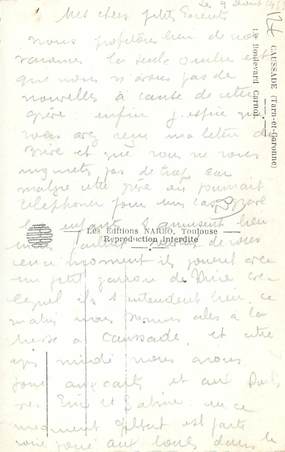 Le 9 Août
Mes chers petits Parents
nous profitons bien de nos
vacances la seule ombre est
que nous n'avons pas de
nouvelles à cause de cette
grève enfin j'espère que
vous avez reçu ma lettre de
et que vous ne vous
inquiétez pas de trop car
malgré cette grève on pourrait
téléphoner pour un cas grave
les enfants s'amusent bien
un petit garçon de
lequel ils s'entendent bien. ce
matin nous sommes allés à la
messe à Caussade. et cette
après midi nous avons
joué aux cartes et aux
Eric et Sabine. en ce
moment Gilbert est parti
joué aux boules dans le
CAUSSADE (Tarn-et-Garonne)
Boulevard Carnot
Les Editions NARBO, Toulouse
Reproduction interdite